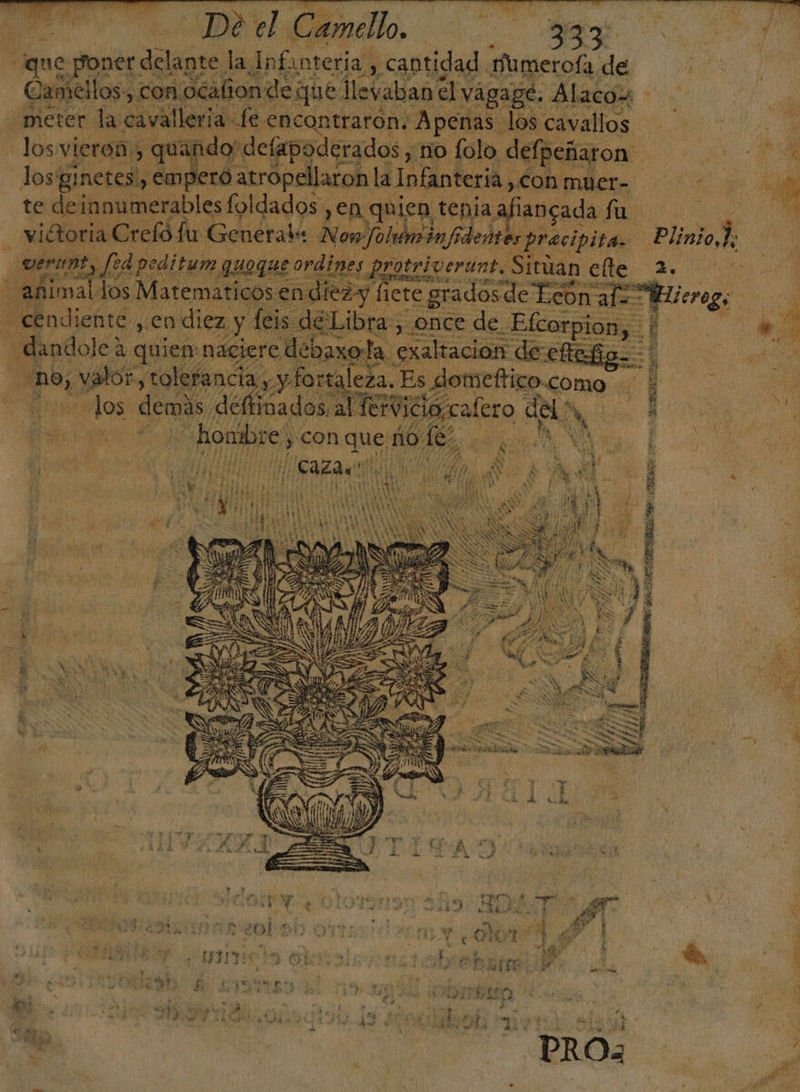 De el Camello. 333
que poner delante la Infanteria, cantidad numerosa de
Camellos, con ocaſion de que llevaban el vagagé. Alaco-
meter la cavalleria ſe encontraron. Apenas los cavallos
los vieron, quando deſapoderados, no ſolo deſpeñaron
los ginetes, emperó atropellaron la Infanteria, con muer-
te de innumerables ſoldados, en quien tenia afiançada ſu
victoria Creſo ſu General: Non ſolum inſidentes præcipita- Plinio, l.
verunt, ſed peditum quoque ordines protriverunt. Sitùan eſte 2.
animal los Matematicos en diez y ſiete grados de Leon aſ- Hierog.
cendiente, en diez y ſeis de Libra, once de Eſcorpion,
dandole à quien naciere debaxo la exaltacion de eſte ſig-
no, valor, tolerancia, y fortaleza. Es domeſtico como
los demàs deſtinados al ſervicio caſero del
hombre, con que no ſe
caza.
PRO-